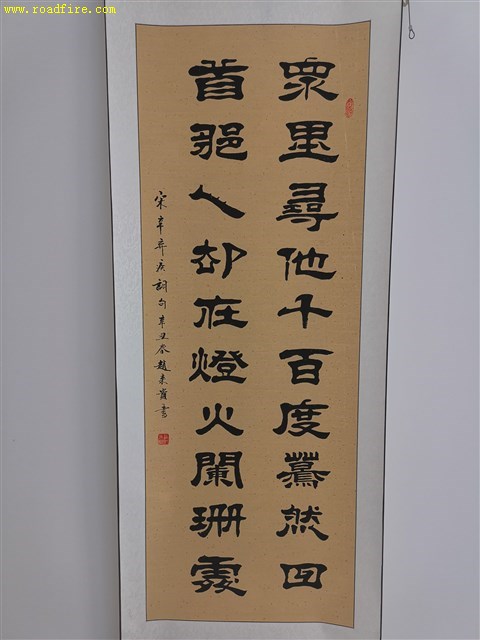 www.roadfire.com
眾里尋他千百度驀然回
首那人却在燈火闌珊處
宋辛弃疾詞句辛丑春趙
書